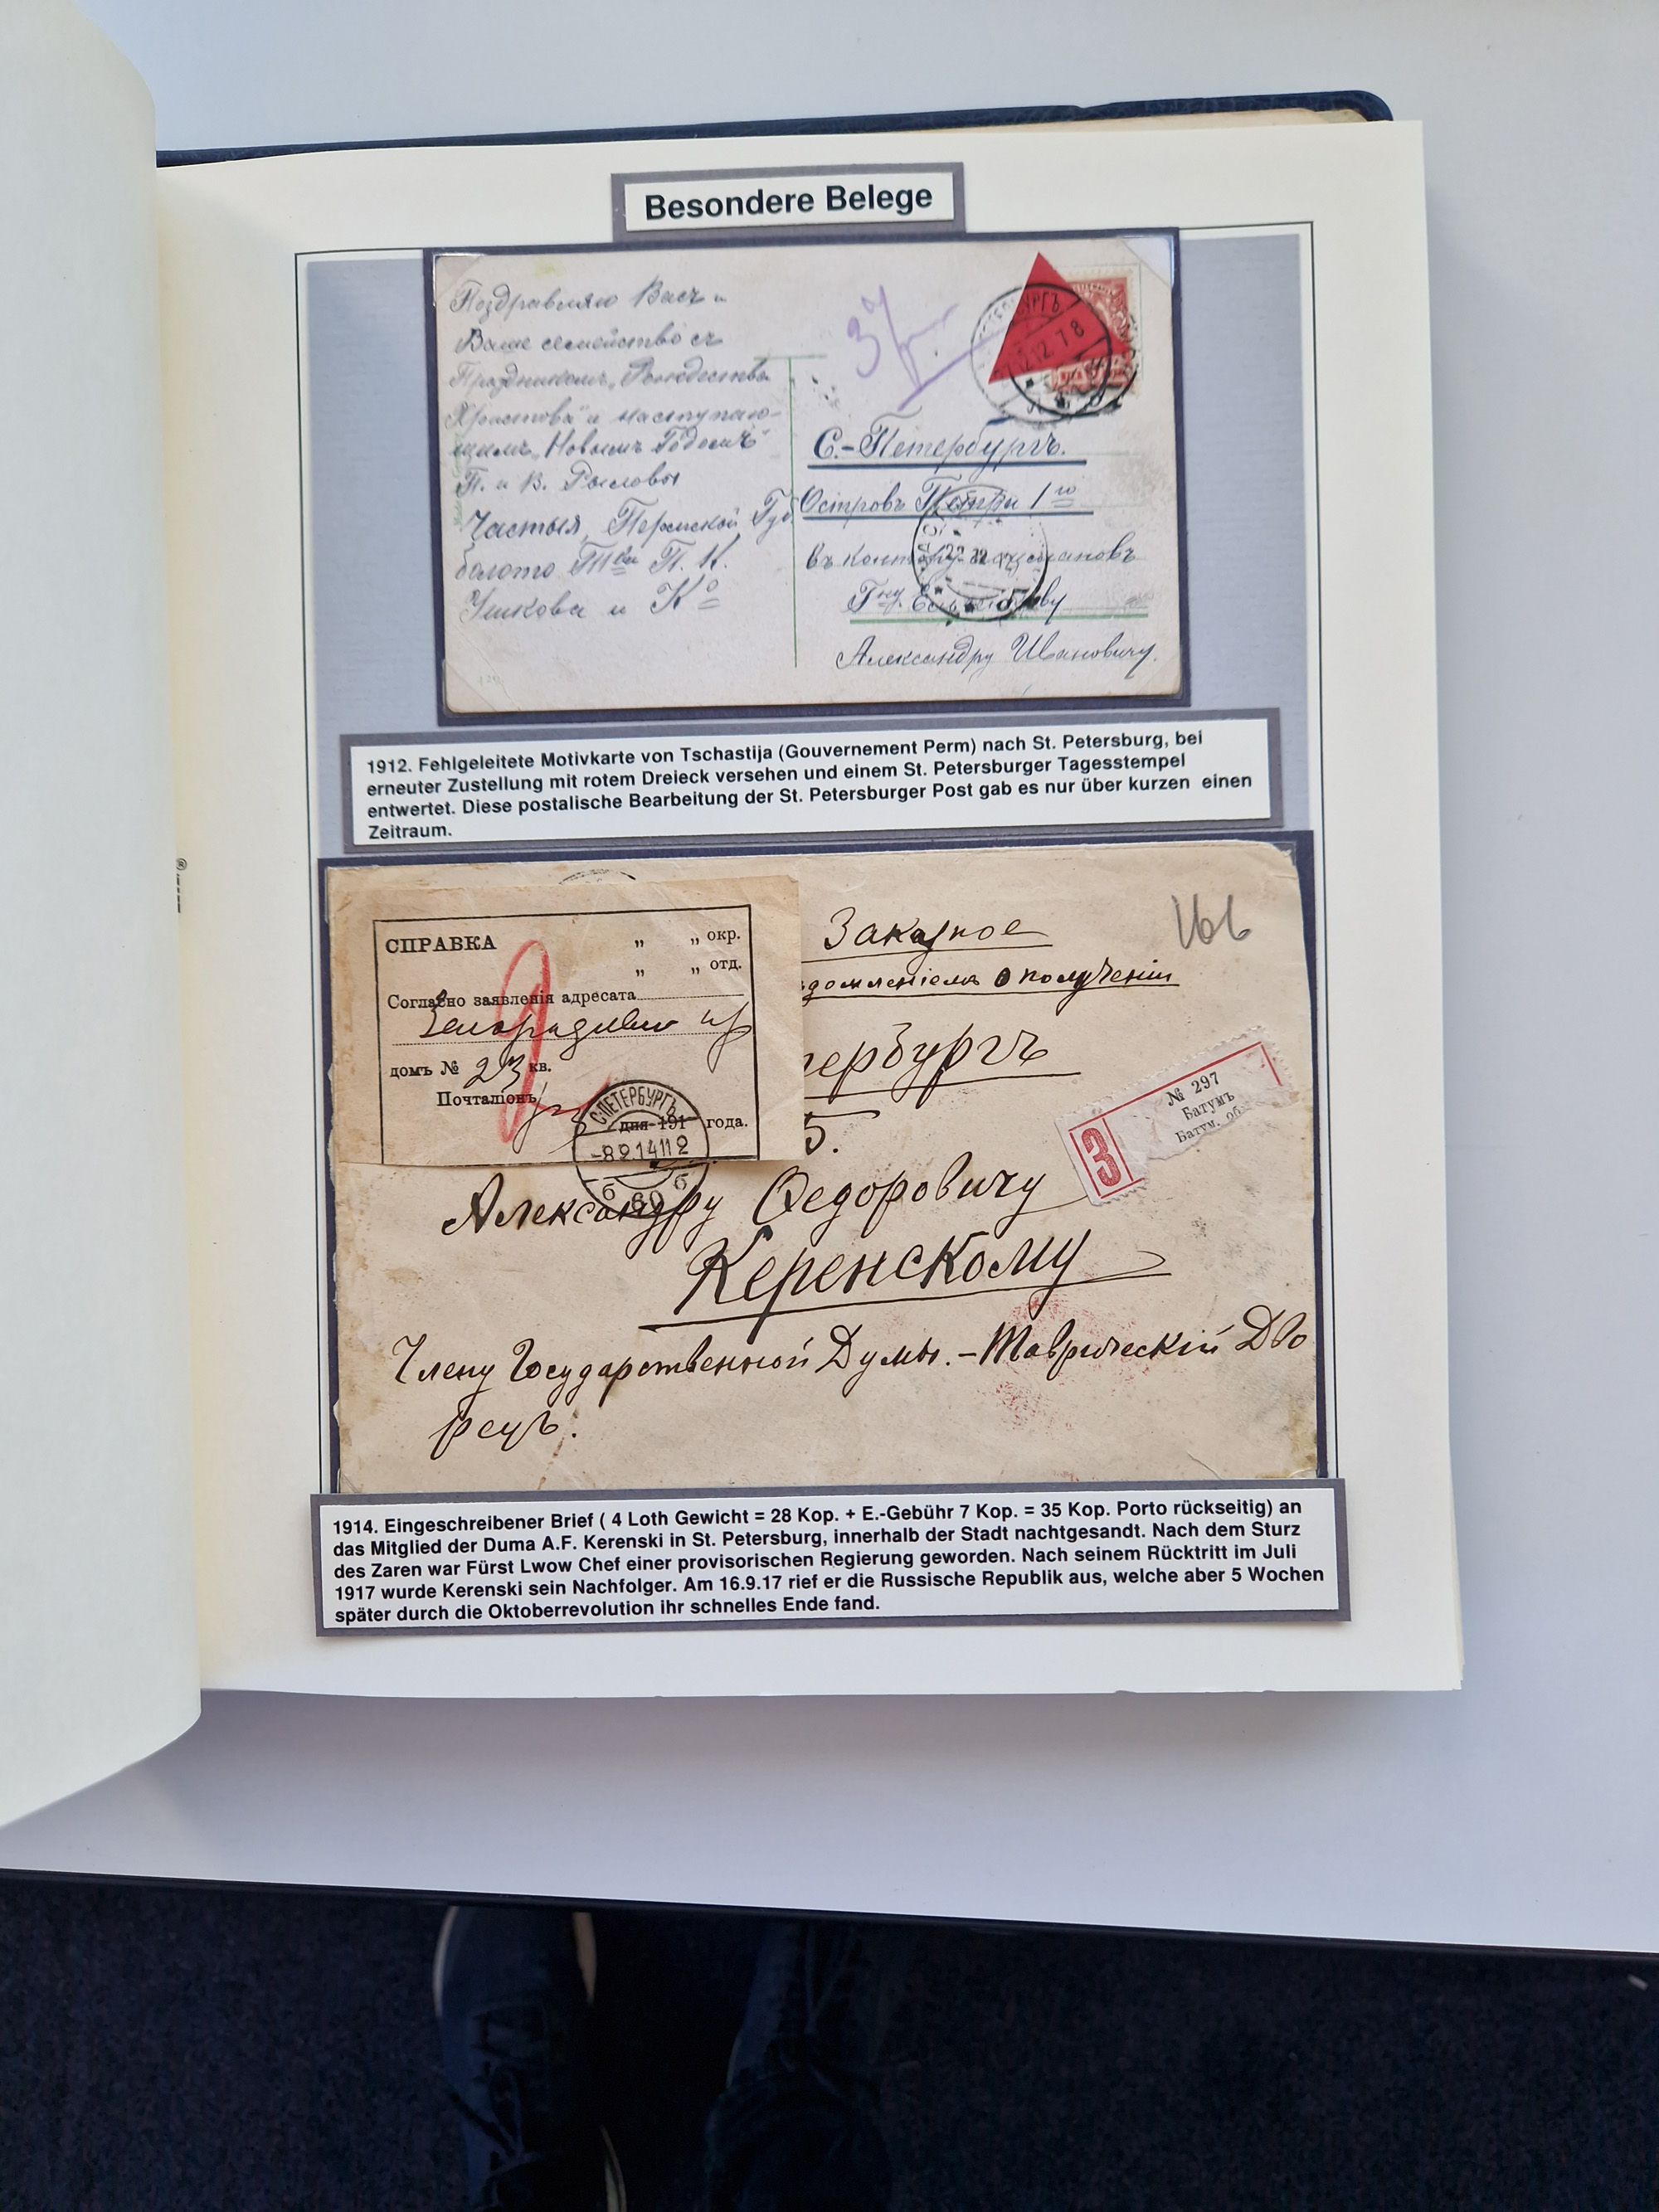 Besondere Belege
Поздравляю Васъ и
Ваше семейство съ
Праздникомъ „Рождества
Христова" и наступаю-
щимъ „Новымъ Годомъ"
П. и В.
Частыя, Пермской Губ
болото Т-ва П. К.
Ушкова и К°
3
12 7 8
С.-Петербургъ.
Островъ Петра 1го
въ контору
Гну
Александру Ивановичу.
1912. Fehlgeleitete Motivkarte von Tschastija (Gouvernement Perm) nach St. Petersburg, bei
erneuter Zustellung mit rotem Dreieck versehen und einem St. Petersburger Tagesstempel
entwertet. Diese postalische Bearbeitung der St. Petersburger Post gab es nur über kurzen einen
Zeitraum.
СПРАВКА „ „ окр.
„ „ отд.
Согласно заявленія адресата
домъ № 23 кв.
Почталіонъ
дня 191 года.
С.ПЕТЕРБУРГЪ
-8 2 14 11 2
б 60 б
Заказное
домленіемъ о полученіи
ербургъ
5.
№ 297
Батумъ
Батум. об
З
Александру Федоровичу
Керенскому
Члену Государственной Думы.-Таврическій Дво
рецъ.
1914. Eingeschreibener Brief ( 4 Loth Gewicht = 28 Kop. + E.-Gebühr 7 Kop. = 35 Kop. Porto rückseitig) an
das Mitglied der Duma A.F. Kerenski in St. Petersburg, innerhalb der Stadt nachgesandt. Nach dem Sturz
des Zaren war Fürst Lwow Chef einer provisorischen Regierung geworden. Nach seinem Rücktritt im Juli
1917 wurde Kerenski sein Nachfolger. Am 16.9.17 rief er die Russische Republik aus, welche aber 5 Wochen
später durch die Oktoberrevolution ihr schnelles Ende fand.